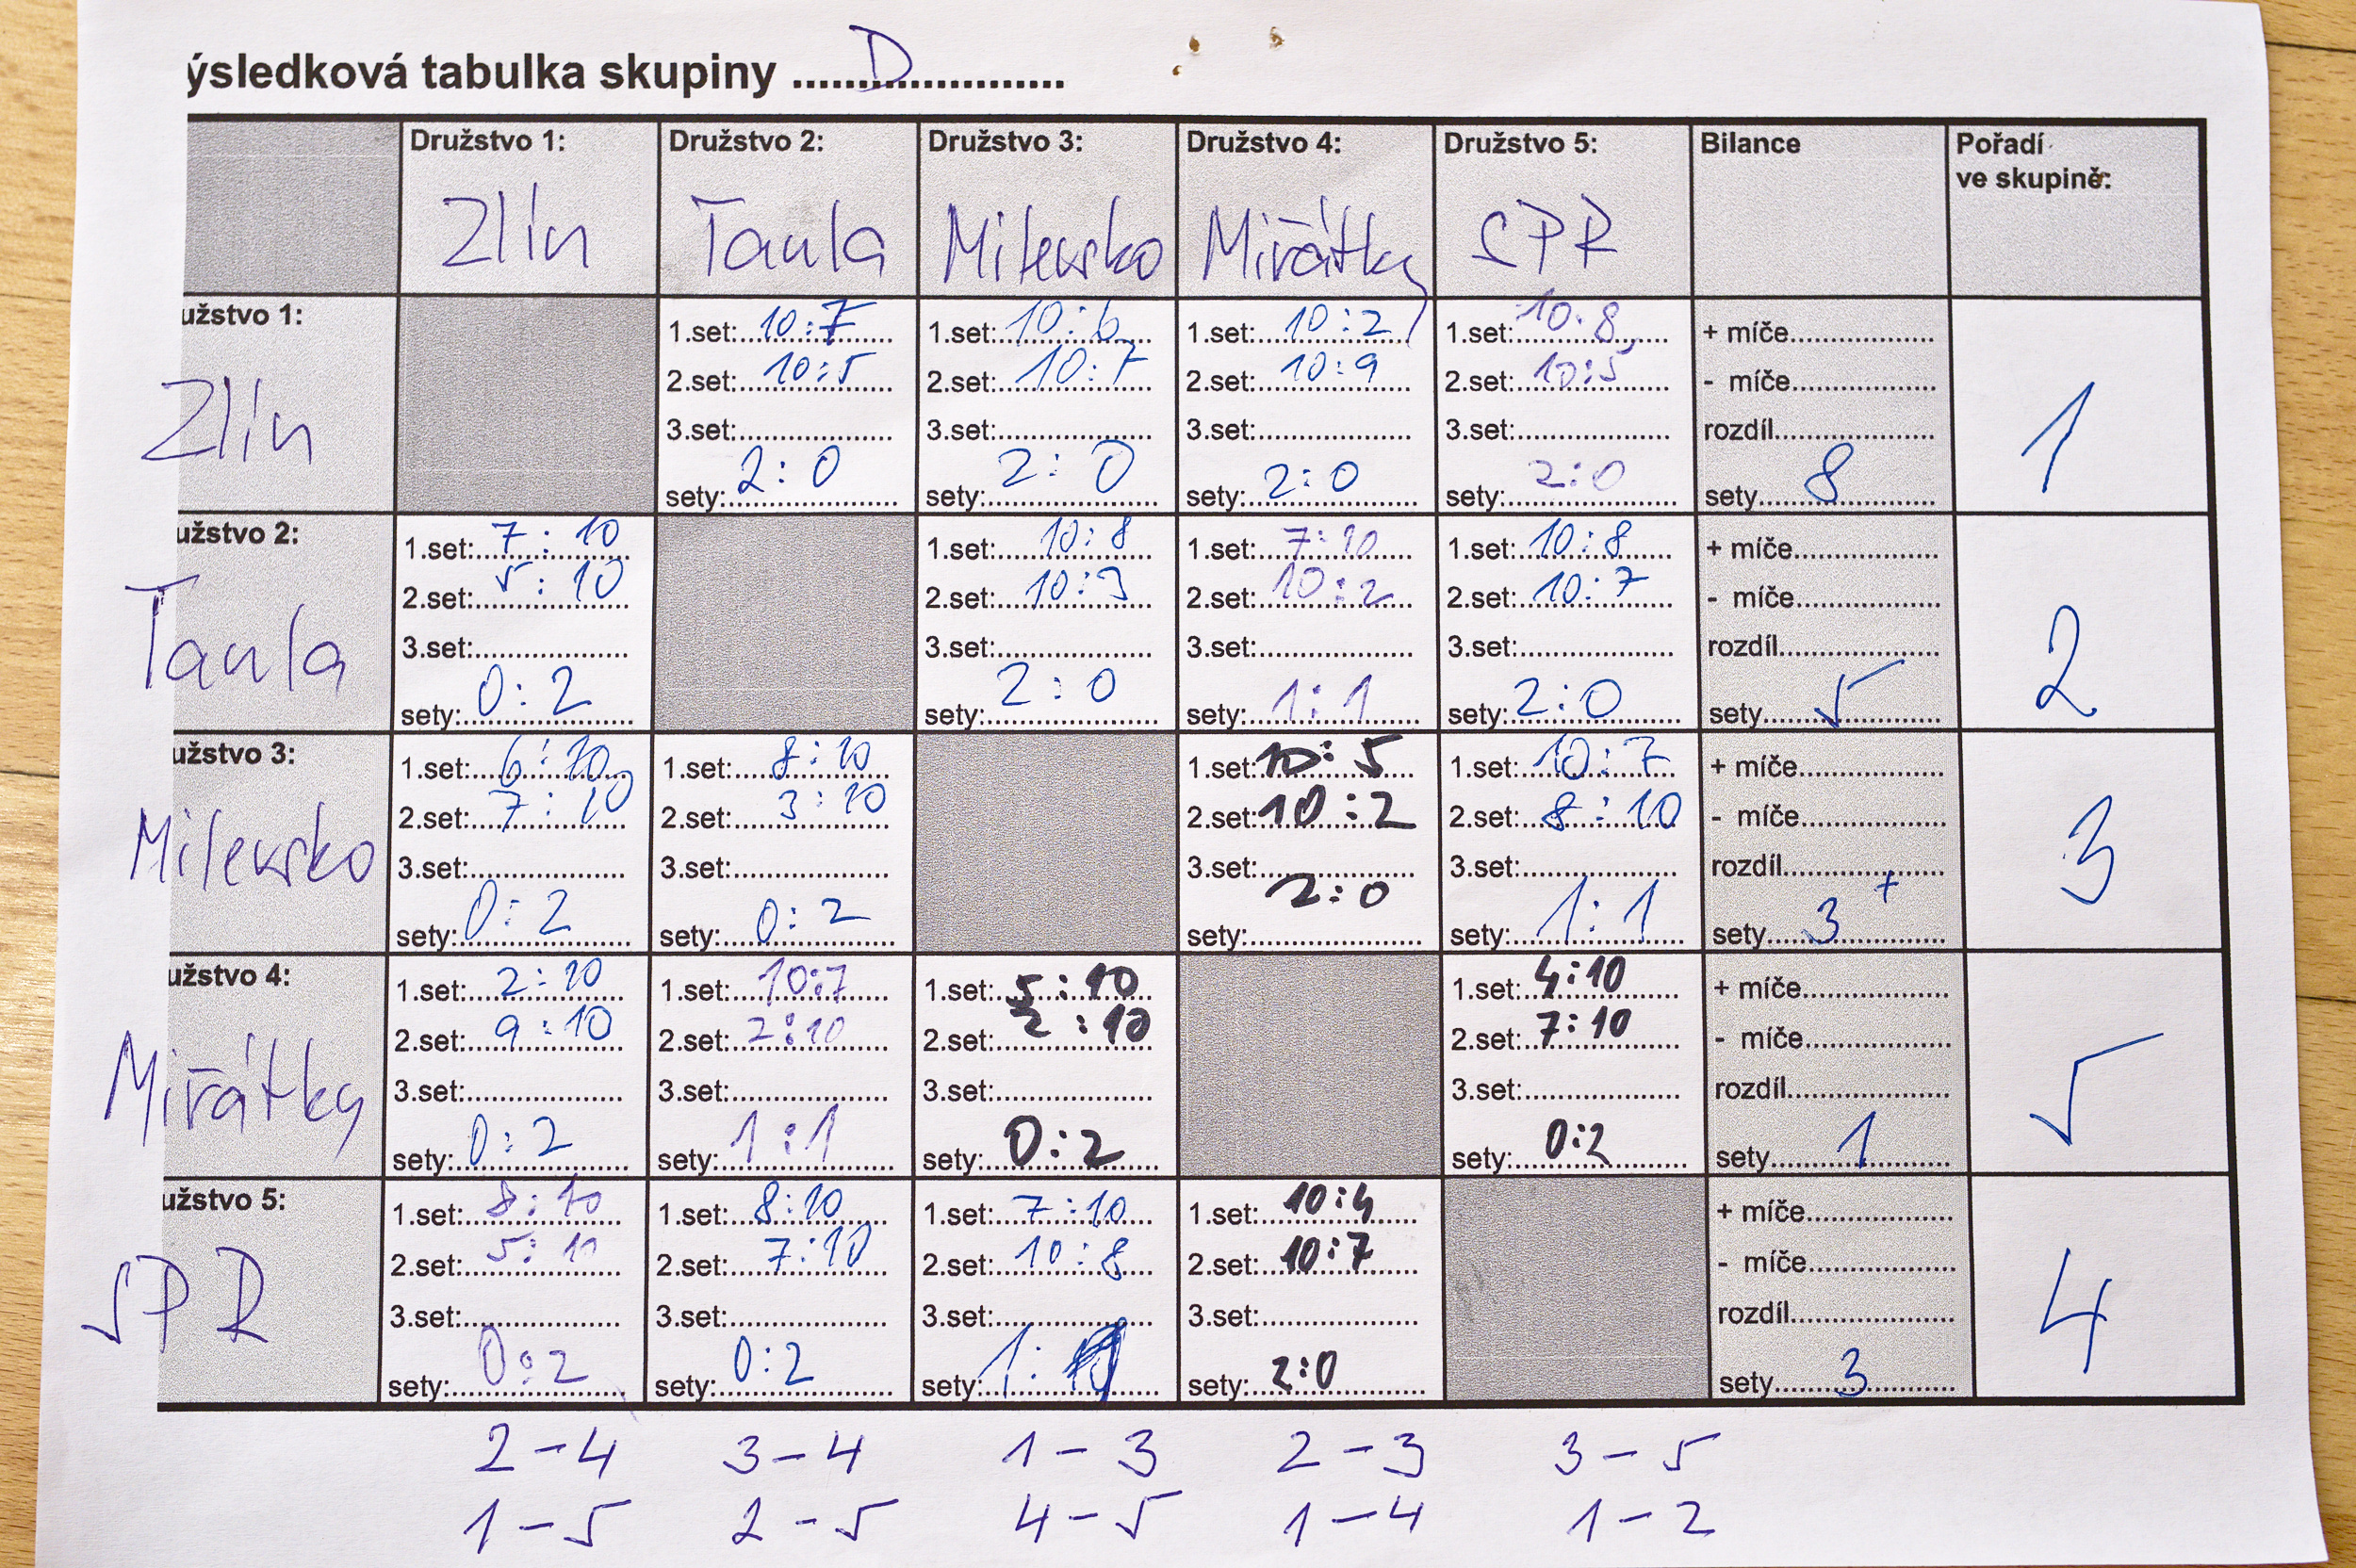 ýsledková tabulka skupiny ......D....................
Družstvo 1: Družstvo 2: Družstvo 3: Družstvo 4: Družstvo 5: Bilance Pořadí
ve skupině:
Zlín Taula Milevsko Miřátky SPR
užstvo 1:
Zlín
1.set: 10:7 1.set: 10:6 1.set: 10:2 1.set: 10:8 + míče
2.set: 10:5 2.set: 10:7 2.set: 10:9 2.set: 10:5 - míče
3.set: 3.set: 3.set: 3.set: rozdíl
sety: 2:0 sety: 2:0 sety: 2:0 sety: 2:0 sety 8
1
užstvo 2:
Taula
1.set: 7:10 1.set: 10:8 1.set: 7:10 1.set: 10:8 + míče
2.set: 5:10 2.set: 10:3 2.set: 10:2 2.set: 10:7 - míče
3.set: 3.set: 3.set: 3.set: rozdíl
sety: 0:2 sety: 2:0 sety: 1:1 sety: 2:0 sety 5
2
užstvo 3:
Milevsko
1.set: 6:10 1.set: 8:10 1.set: 10:5 1.set: 10:7 + míče
2.set: 7:10 2.set: 3:10 2.set: 10:2 2.set: 8:10 - míče
3.set: 3.set: 3.set: 3.set: rozdíl
sety: 0:2 sety: 0:2 sety: 2:0 sety: 1:1 sety 3+
3
užstvo 4:
Miřátky
1.set: 2:10 1.set: 10:7 1.set: 5:10 1.set: 4:10 + míče
2.set: 9:10 2.set: 2:10 2.set: 2:10 2.set: 7:10 - míče
3.set: 3.set: 3.set: 3.set: rozdíl
sety: 0:2 sety: 1:1 sety: 0:2 sety: 0:2 sety 1
5
užstvo 5:
SPR
1.set: 8:10 1.set: 8:10 1.set: 7:10 1.set: 10:4 + míče
2.set: 5:10 2.set: 7:10 2.set: 10:8 2.set: 10:7 - míče
3.set: 3.set: 3.set: 3.set: rozdíl
sety: 0:2 sety: 0:2 sety: 1:1 sety: 2:0 sety 3
4
2-4 3-4 1-3 2-3 3-5
1-5 2-5 4-5 1-4 1-2